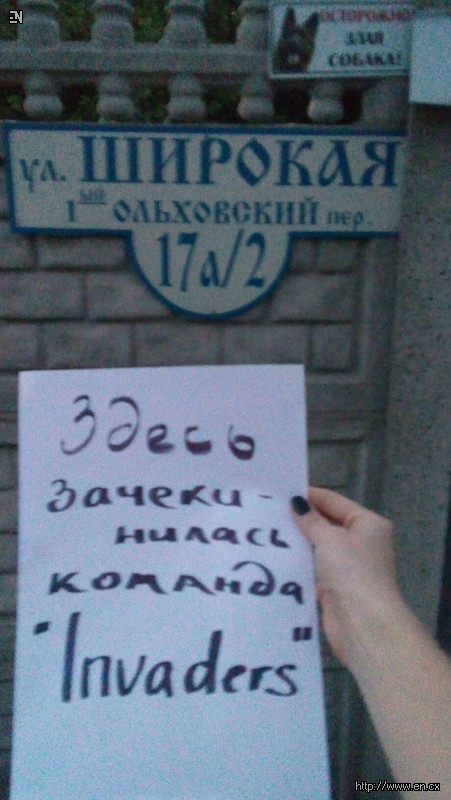 EN
ОСТОРОЖНО
ЗЛАЯ
СОБАКА!
ул. ШИРОКАЯ
1ый ОЛЬХОВСКИЙ пер.
17а/2
Здесь
зачеки-
нилась
команда
"Invaders"
http://www.en.cx